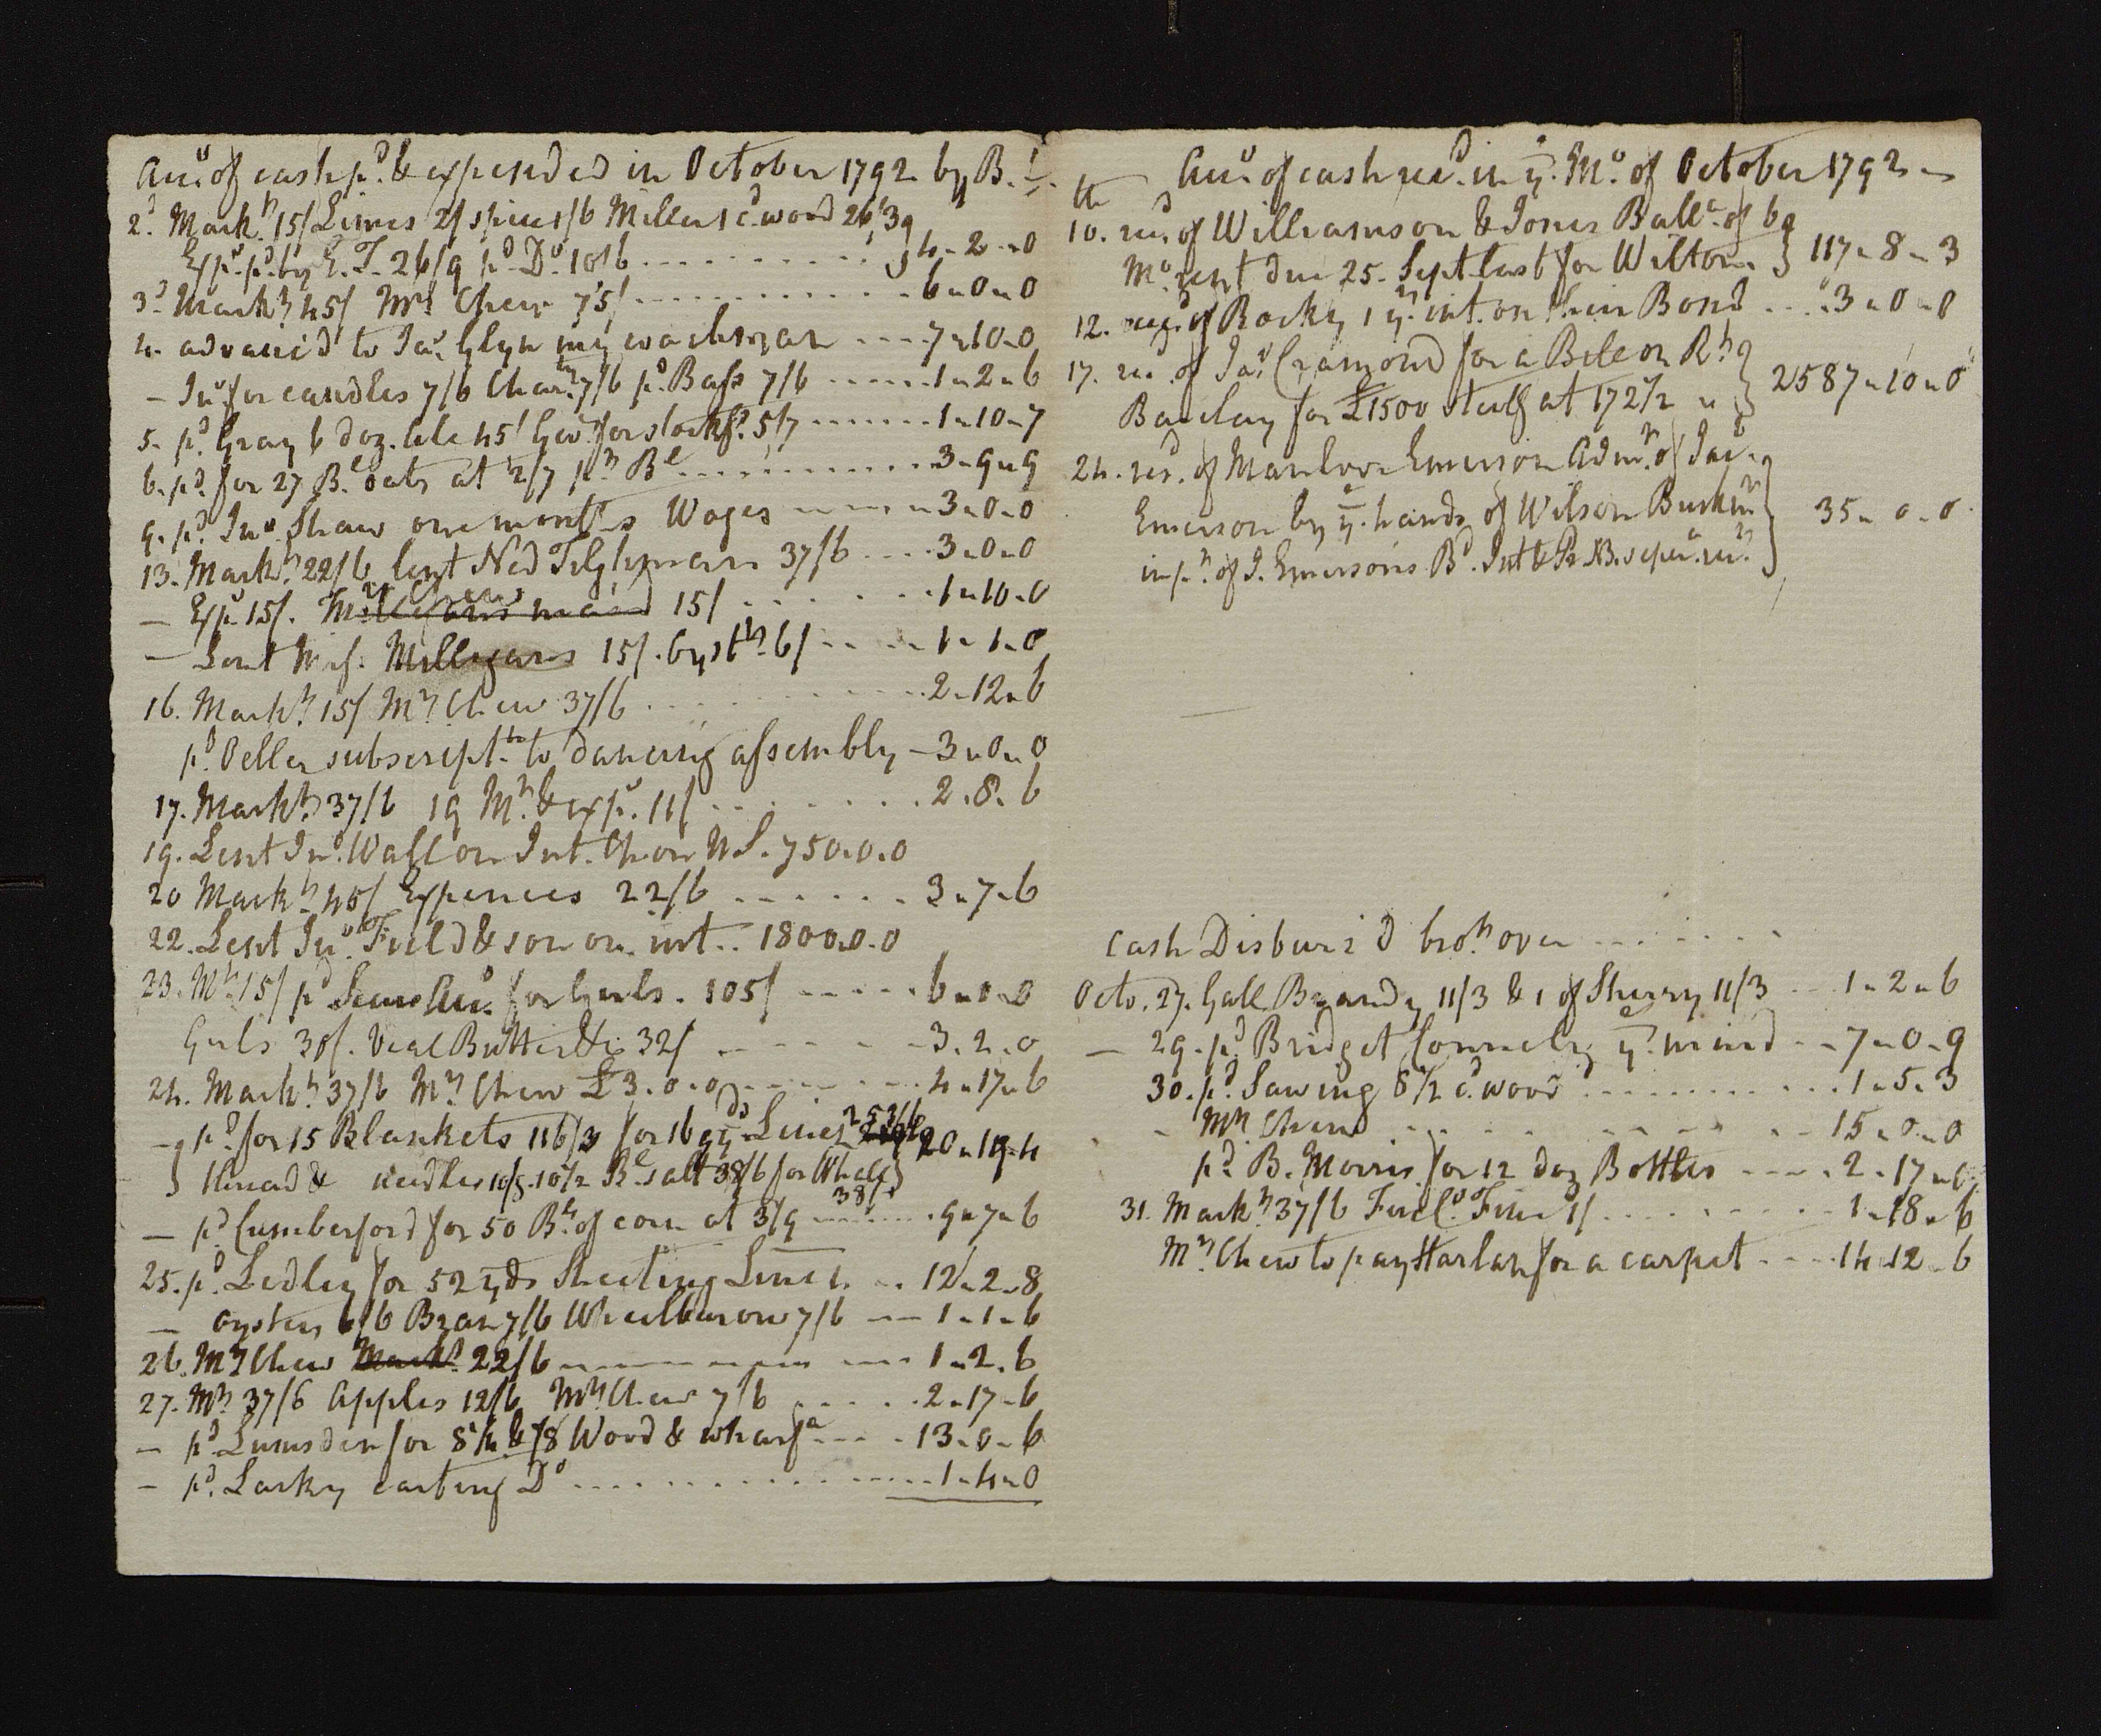 Accᵗ of cash pᵈ & expended in October 1792 by B.
2ᵈ Markᵗ 15/ Limes 2/ spice 1/6 Miller 1 cᵈ wood 26/3
Expˢ pᵈ by E. T. 26/9 pᵈ Dᵒ 10/6 4-2-0
3ᵈ Markᵗ 45/ Mrˢ Chew 75/ 6-0-0
4. advanced to Jaˢ Glyn my coachman 7-10-0
- Jnᵒ for candles 7/6 Charᵗʸ 7/6 pᵈ Bass 7/6 1-2-6
5. pᵈ Gray 6 doz. ale 45/ Geo. for 5/7 1-10-7
6. pᵈ for 27 Bˡ oats at 2/7 pʳ Bˡ 3-9-9
9. pᵈ Jnᵒ Shaw one month's Wages 3-0-0
13. Markᵗ 22/6 lent Ned Tilghman 37/6 3-0-0
- Expˢ 15/. Mʳˢ Chew 15/ 1-10-0
- Lent Miss Milligans 15/. oystʳˢ 6/ 1-1-0
16. Markᵗ 15/ Mʳˢ Chew 37/6 2-12-6
pᵈ Oeller subscriptⁿ to dancing assembly 3-0-0
17. Markᵗ 37/6 19 Mᵗ & expˢ 11/ 2.8.6
19. Lent Jnᵒ Wall on Int. 750.0.0
20 Markᵗ 45/ Expences 22/6 3-7-6
22. Lent Jnᵒ Field & son on int. 1800.0.0
23. Mᵗ 15/ pᵈ for Girls. 105/ 6-0-0
Girls 30/. Veal Butter &c 32/ 3.2.0
24. Markᵗ 37/6 Mʳˢ Chew £3.0.0 4-17-6
- pᵈ for 15 Blankets 116/3 for 16 yᵈˢ Linen 253/6
thread & needles 10/8. 10 1/2 Bˡ salt 38/6 for Whall 20-19-4
- pᵈ Cumberford for 50 Bˡˢ of corn at 3/9 9-7-6
25. pᵈ Ledley for 52 yᵈˢ Sheeting Linen 12-2-8
- oysters 6/6 Bran 7/6 Wheelbarow 7/6 1-1-6
26. Mʳˢ Chew Markᵗ 22/6 1-2-6
27. Mᵗ 37/6 apples 12/6 Mʳˢ Chew 7/6 2-17-6
- pᵈ Lumsden for 8 1/2 & 1/8 Wood & wharfᵃ 13-0-6
- pᵈ Larky carting Dᵒ 1-4-0
Accᵗ of cash recᵈ in yᵉ Mᵒ of October 1792
10ᵗʰ recᵈ of Williamson & Jones Ballᶜᵉ of 6
Mᵒ rent due 25. Sept. last for Wilton 117-8-3
12. recᵈ of Rocky 1 yʳˢ int. on their Bond 3-0-0
17. recᵈ of Jaˢ Cramond for a Bill on Rᵗ
Barclay for £1500 sterlᵍ at 172 1/2 2587-10-0
24. recᵈ of Manlove Emerson Admʳ of Jaˢ
Emerson by yᵉ hands of Wilson Buckmʳ
in pᵗ of J. Emerson's Bᵈ. Int & Pr NB. seperᵗ recᵗ 35-0-0
cash Disburs'd broᵗ over
Octo. 27. Gall Brandy 11/3 & 1 of Sherry 11/3 1-2-6
- 29. pᵈ Bridget Connely yᵉ 7-0-9
30. pᵈ Sawing 8 1/2 cᵈ wood 1-5-3
- Mʳˢ Chew 15-0-0
pᵈ B. Morris for 12 doz Bottles 2-17-6
31. Markᵗ 37/6 Fine 1/ 1-18-6
Mʳˢ Chew to pay Harlan for a carpet 14-12-6